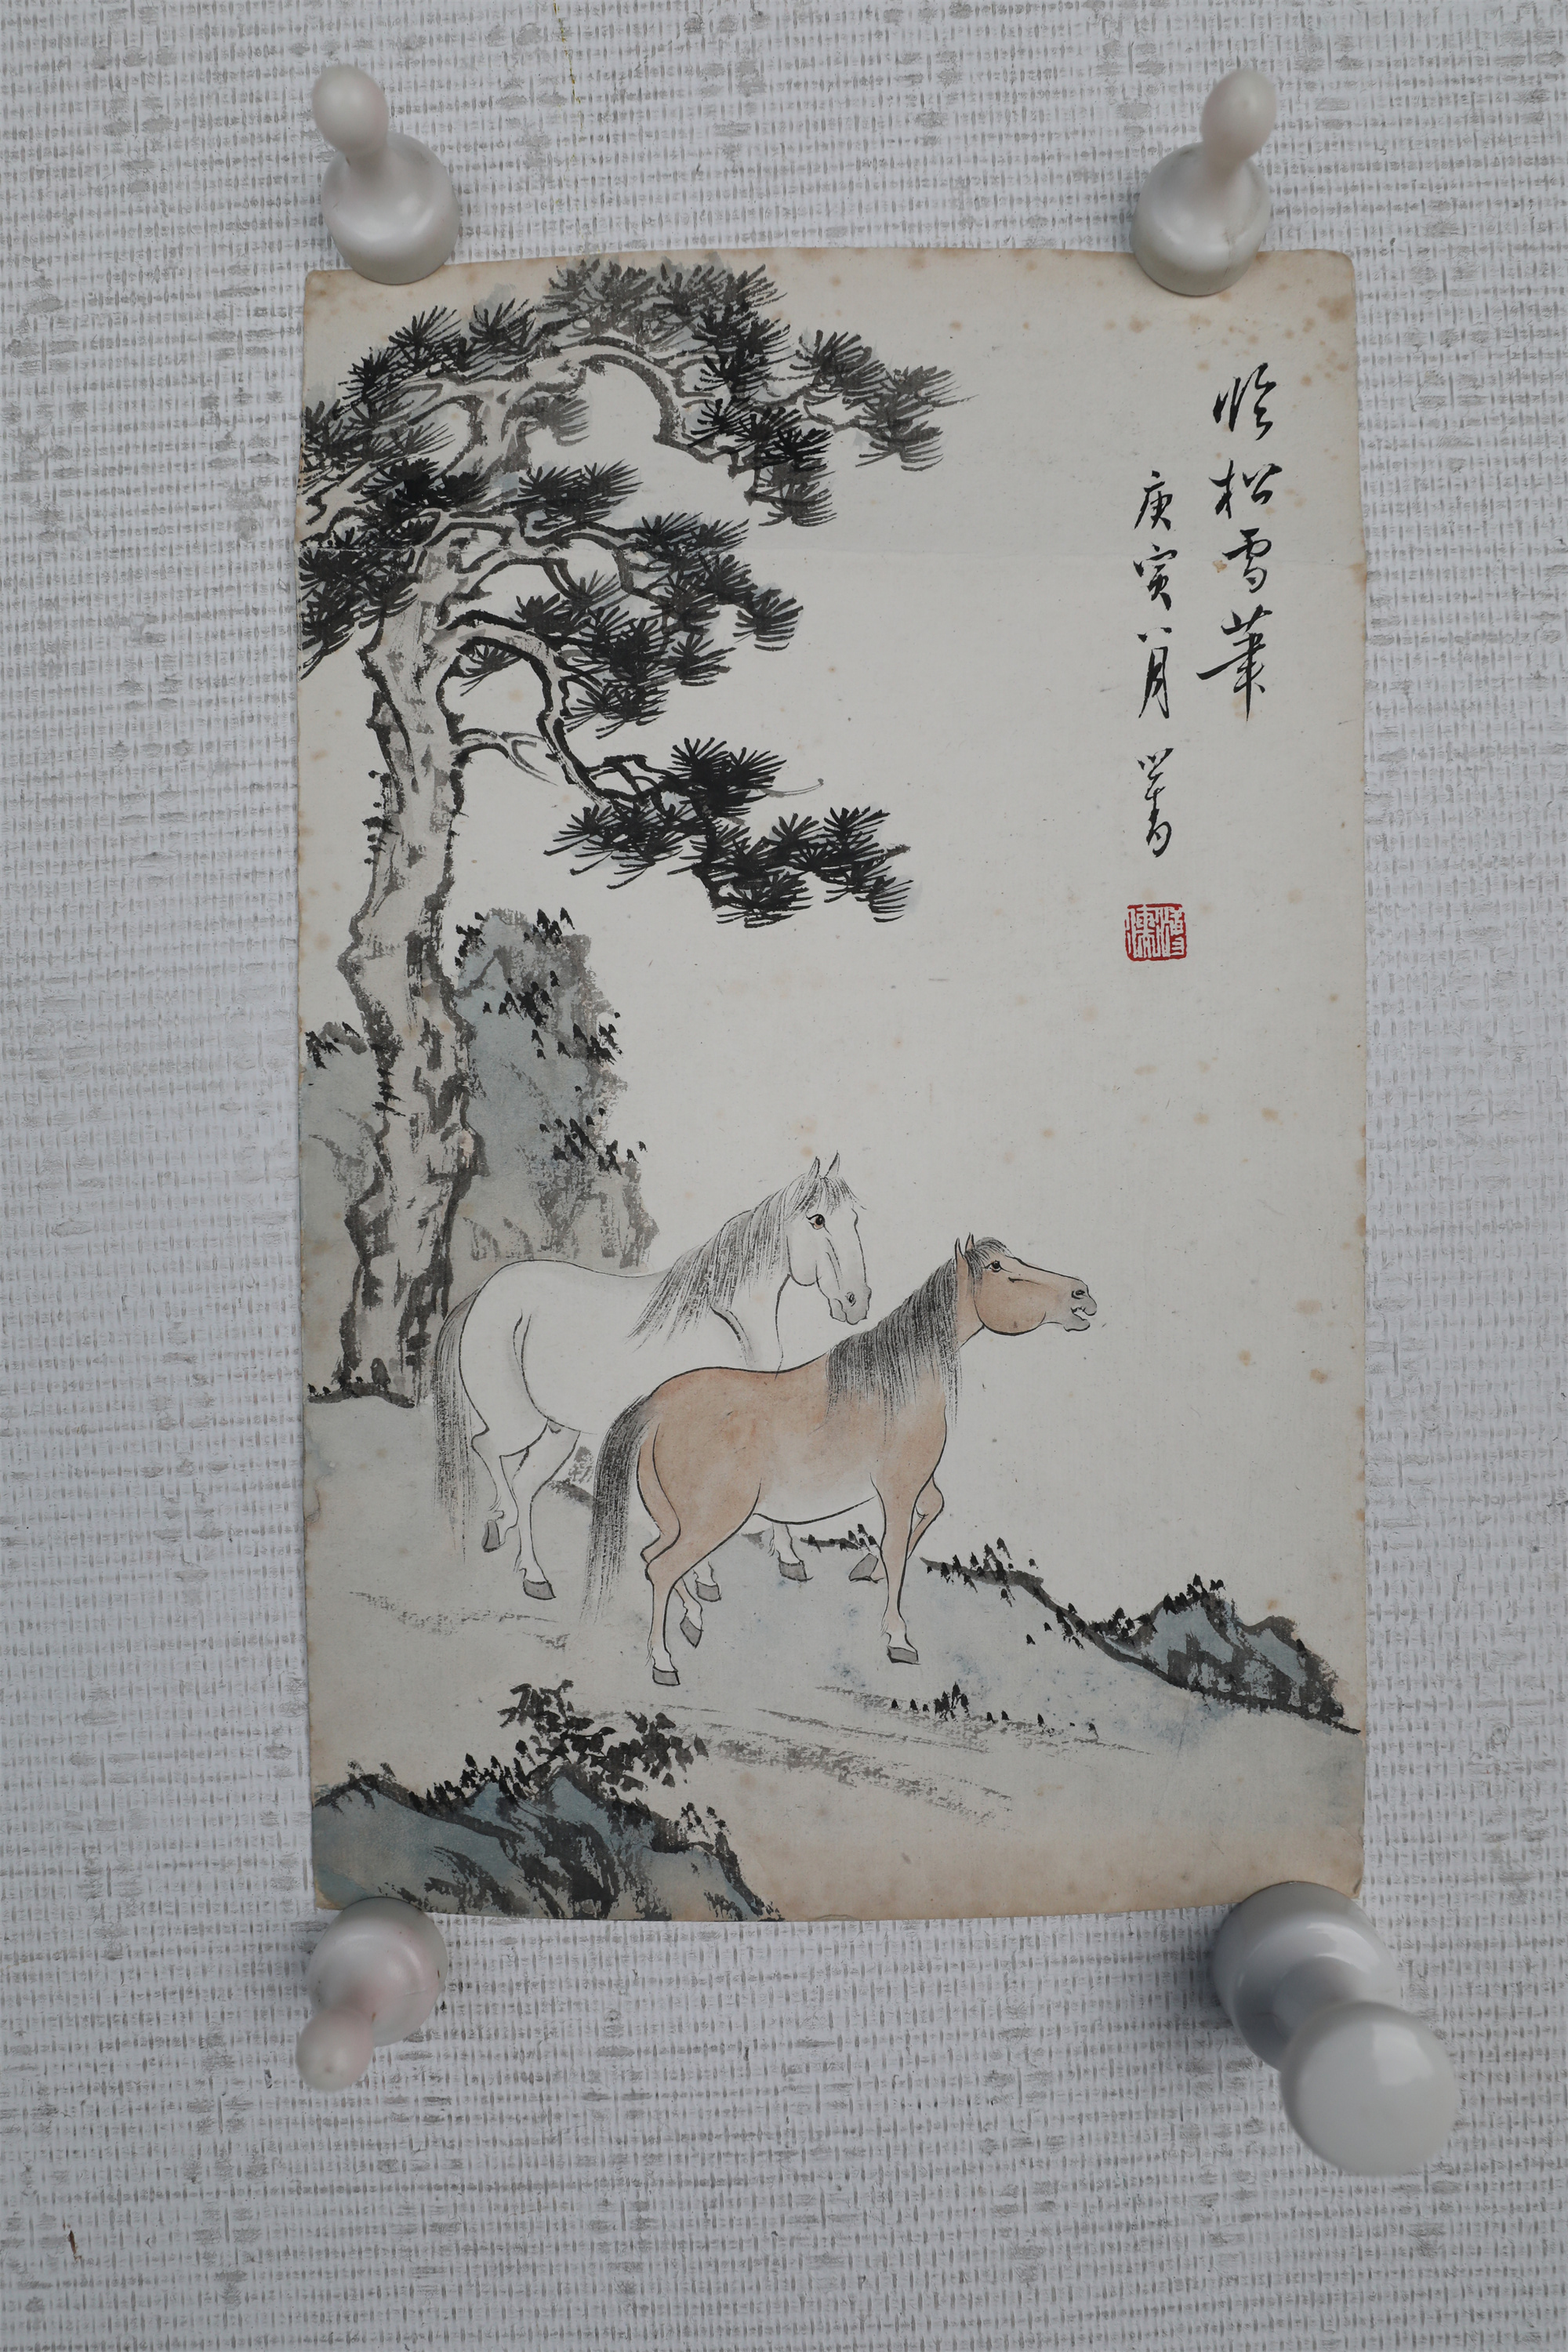 臨松雪筆
庚寅八月 溥儒
溥儒